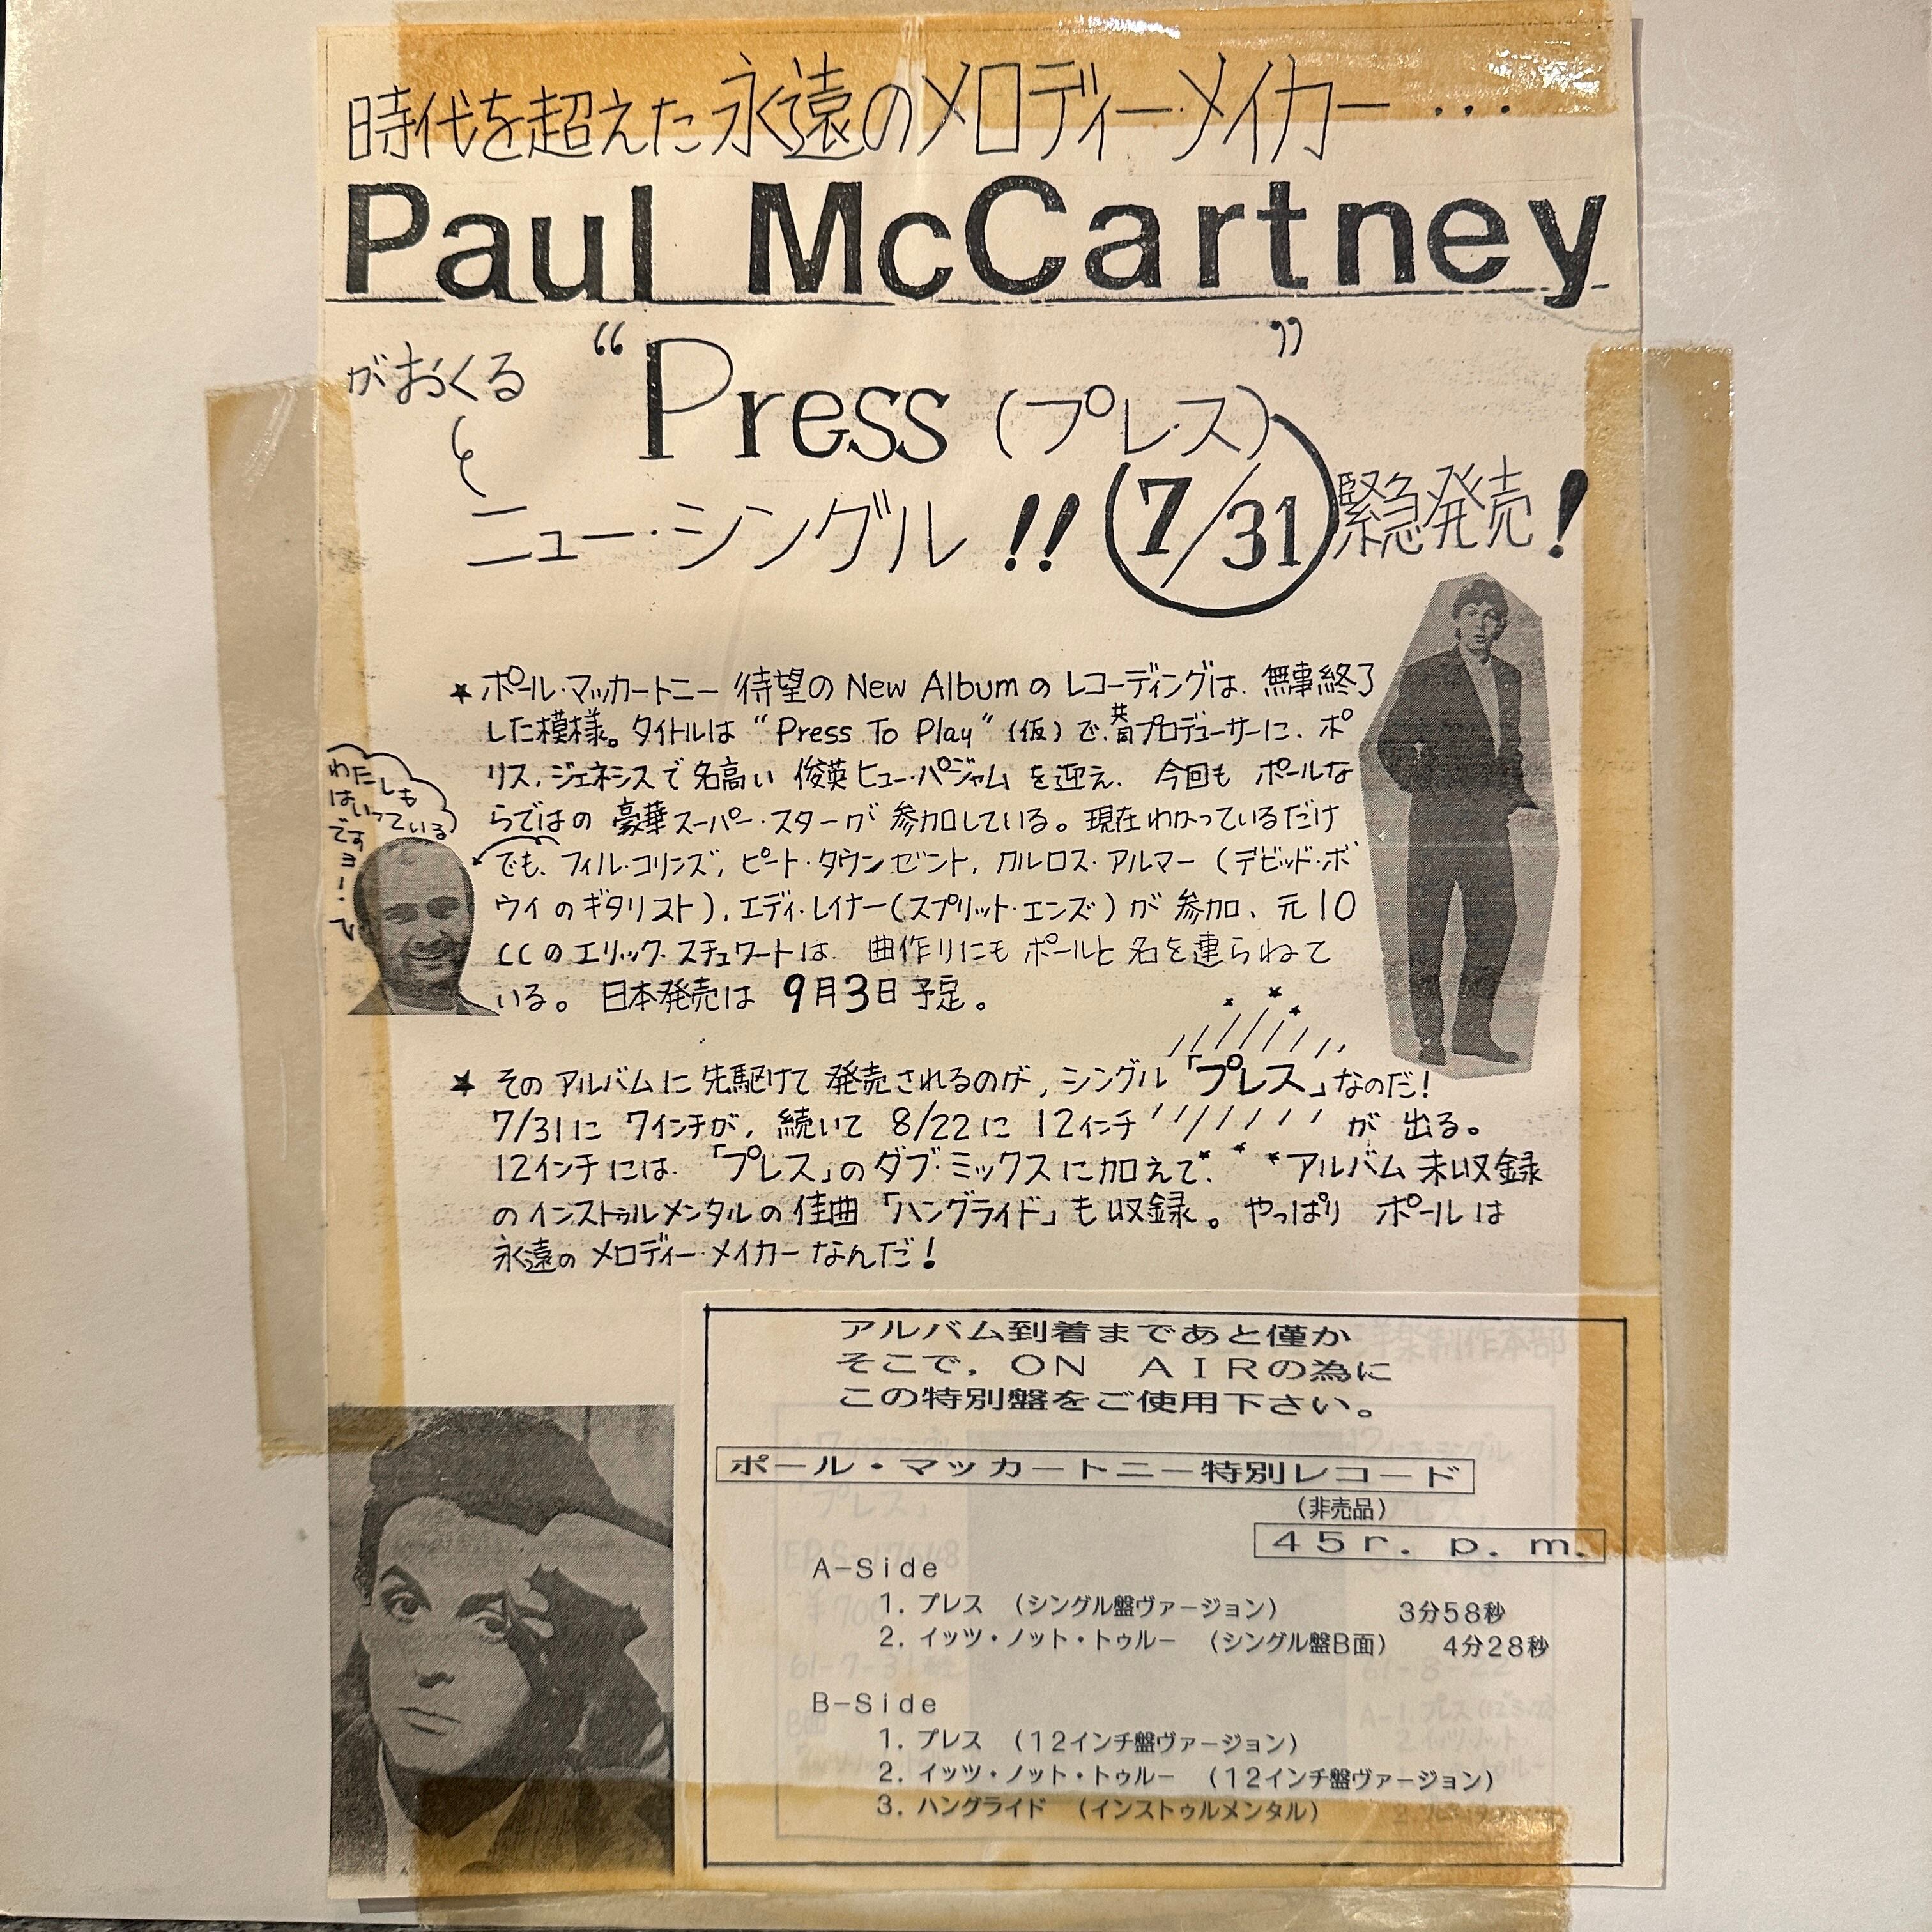 時代を超えた永遠のメロディー・メイカー...
Paul McCartney
がおくる “Press (プレス)”
ニュー・シングル!! 7/31 緊急発売!
★ポール・マッカートニー待望のNew Albumのレコーディングは、無事終了
した模様。タイトルは“Press To Play”(仮)で、共同プロデューサーに、ポ
リス、ジェネシスで名高い俊英ヒュー・パジャムを迎え、今回もポールな
らではの豪華スーパー・スターが参加している。現在わかっているだけ
でも、フィル・コリンズ、ピート・タウンゼント、カルロス・アルマー(デビッド・ボ
ウイのギタリスト)、エディ・レイナー(スプリット・エンズ)が参加、元10
CCのエリック・スチュワートは曲作りにもポールと名を連らねて
いる。日本発売は9月3日予定。
わたしも
はいっている
ですョー!
★そのアルバムに先駆けて発売されるのが、シングル「プレス」なのだ!
7/31に7インチが、続いて8/22に12インチが出る。
12インチには「プレス」のダブ・ミックスに加えて、アルバム未収録
のインストゥルメンタルの佳曲「ハングライド」も収録。やっぱりポールは
永遠のメロディー・メイカーなんだ!
アルバム到着まであと僅か
そこで，ON AIRの為に
この特別盤をご使用下さい。
ポール・マッカートニー特別レコード
(非売品)
45r. p. m.
A-Side
1. プレス (シングル盤ヴァージョン) 3分58秒
2. イッツ・ノット・トゥルー (シングル盤B面) 4分28秒
B-Side
1. プレス (12インチ盤ヴァージョン)
2. イッツ・ノット・トゥルー (12インチ盤ヴァージョン)
3. ハングライド (インストゥルメンタル)